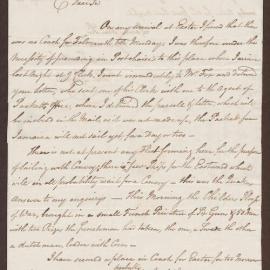 Dear Sir
On my arrival at Exeter I found that there
was no Coach for Falmouth till Monday, I was therefore under the
necessity of proceeding in Postchaise to this place where I arrived
last night at 9 Clock, I went immediately to Mr Fox and delivered
your letter, who sent one of his Clerks with me to the Agent of
Packets Office, where I delivered the parcel of letters, which will
be inclosed in the Mail, as it was not made up, the Packet for
Jamaica will not sail yet for a day or two –
There is not at present any Fleet forming here for the purpose
of sailing with Convoy, there a few Ships for the Eastward which
will in all probability wait for a Convoy – this was the
Answer to my enquirys – This Morning the Childers Sloop
of War, brought in a small French Privateer of Six Guns &
with two Prizes the Frenchman had taken, the one a the other
a dutch man, laden with Corn –
I have secured a place in Coach for Exeter for tomorrow